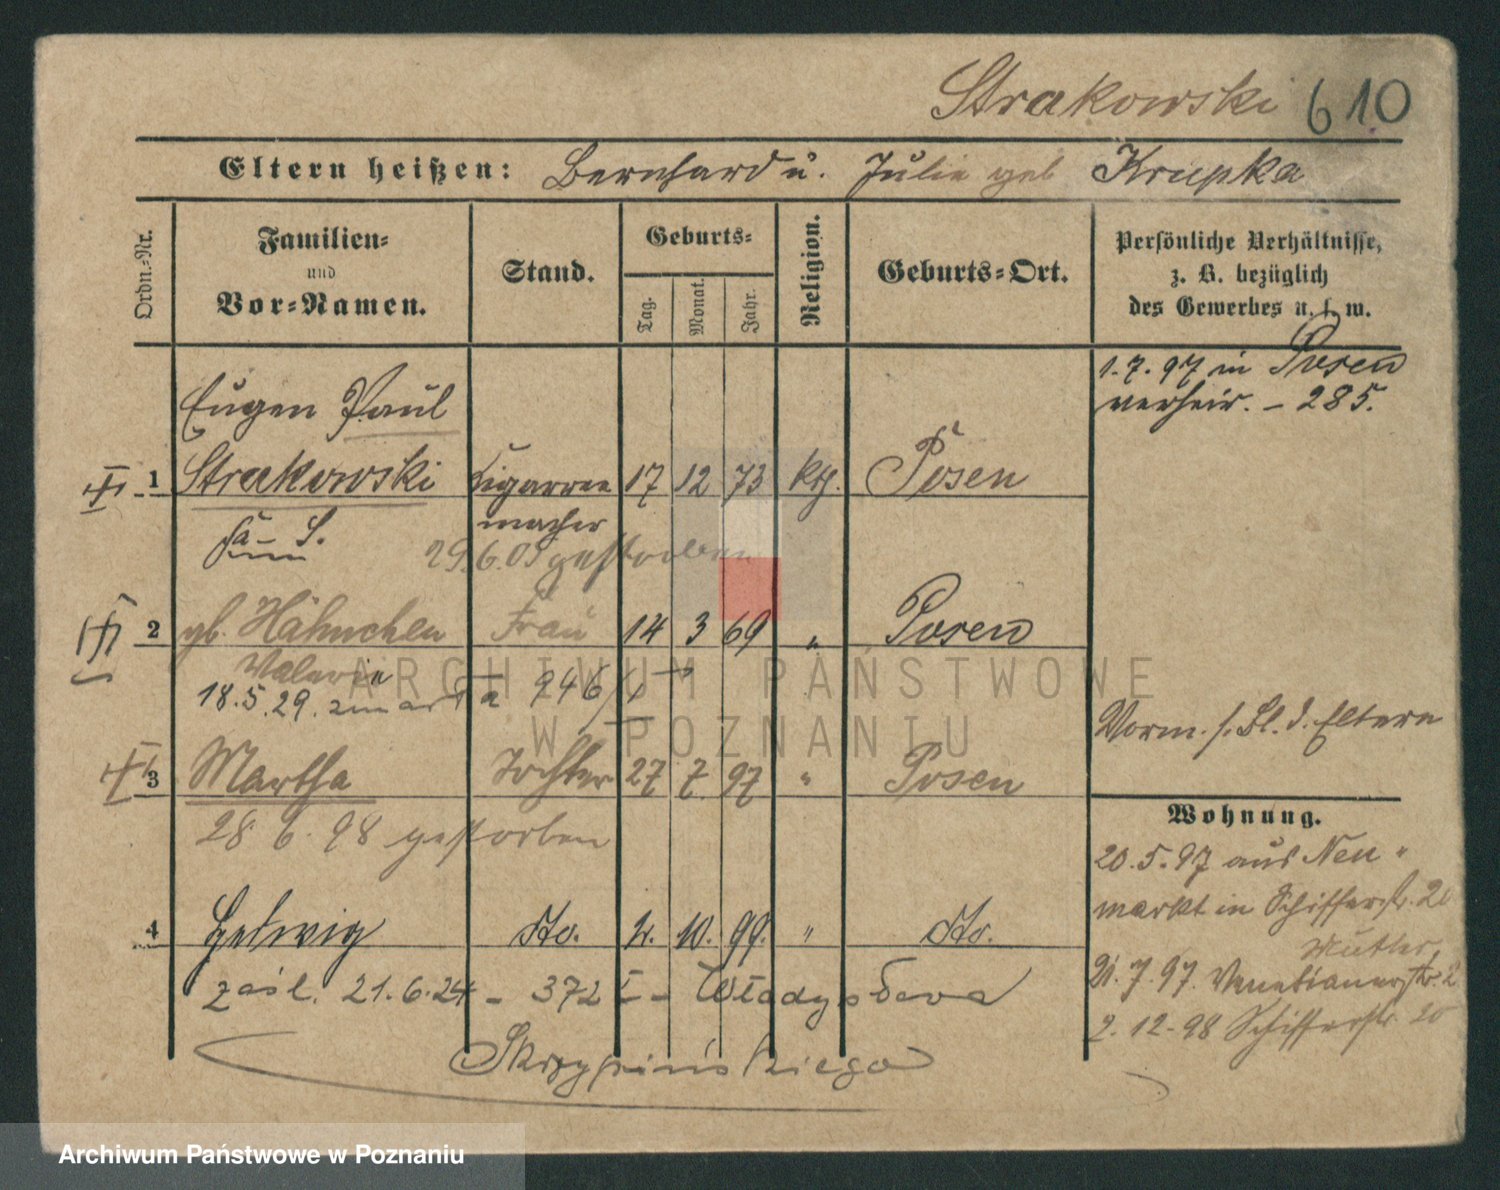 Strakowski 610
Eltern heißen: Bernhard u. Julie geb Krupka
Ordn.-Nr.
Familien-
und
Vor-Namen.
Stand.
Geburts-
Tag.
Monat.
Jahr.
Religion.
Geburts-Ort.
Persönliche Verhältnisse,
z. B. bezüglich
des Gewerbes u. s. w.
1.7.97 in Posen
verheir. – 285.
Eugen Paul
1 Strakowski Cigarren 17 12 73 kth. Posen
macher
29.6.05 gestorben
2 gb. Hähnchen Frau 14 3 69 „ Posen
Valerie
18.5.29. zmarła 946/
Vorm. s. Bl. d. Eltern
3 Martha Tochter 27 7 97 " Posen
28 6. 98 gestorben
Wohnung.
20.5.97 aus Neu-
markt in Schifferstr. 20
Mutter,
4 Hedwig dto. 2. 10. 99. " dto.
21.7.97. Venetianerstr. 2
zaśl. 21.6.24 – 372 I – Władysława
2.12.98 Schifferstr. 20
Skrzypińskiego
ARCHIWUM PAŃSTWOWE
W POZNANIU
Archiwum Państwowe w Poznaniu